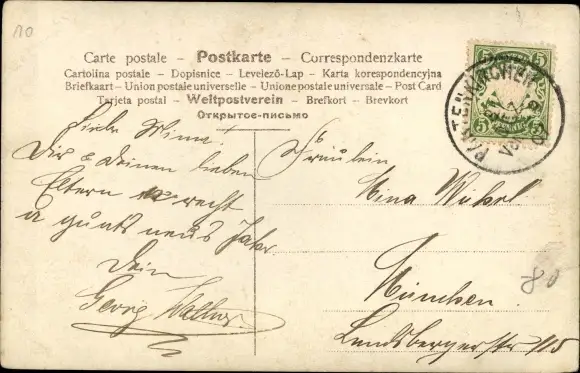 10
Carte postale – Postkarte – Correspondenzkarte
Cartolina postale – Dopisnice – Levelező-Lap – Karta korespondencyjna
Briefkaart – Union postale universelle – Unione postale universale – Post Card
Tarjeta postal – Weltpostverein – Brefkort – Brevkort
Открытое-письмо
Liebe Minna!
Dir & Deinen lieben
Eltern recht
a guats neus Jahr
Dein
Georg
Fräulein
Mina
München
Landsbergerstr 115
80
5
PARTENKIRCHEN